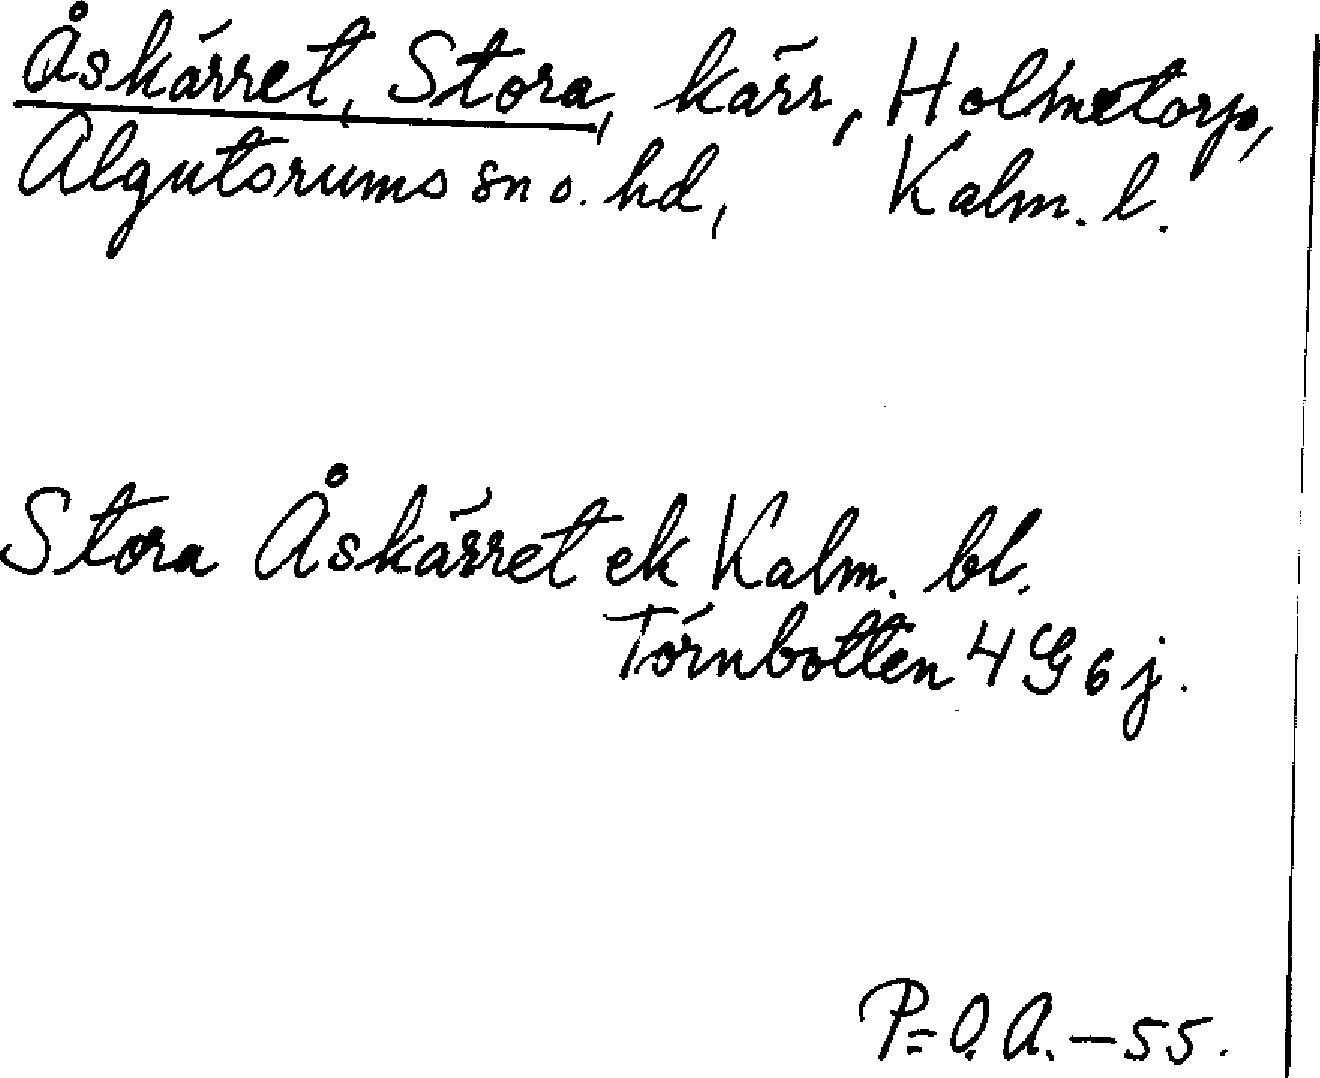 Åskärret, Stora, kärr, Holmetorp,
Algutsrums sn o. hd, Kalm. l.
Stora Åskärret ek Kalm. bl.
Törnbotten 4 G 6 j.
P-O.A. - 55.